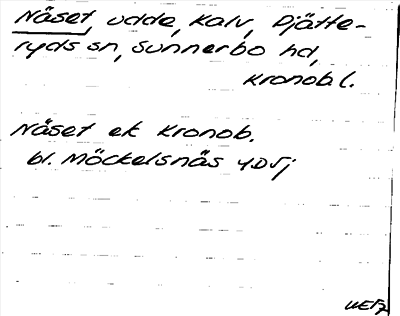 Näset, udde, Kalv, Pjätte-
ryds sn, Sunnerbo hd,
Kronob l.
Näset ek Kronob.
bl. Möckelsnäs 4D5j